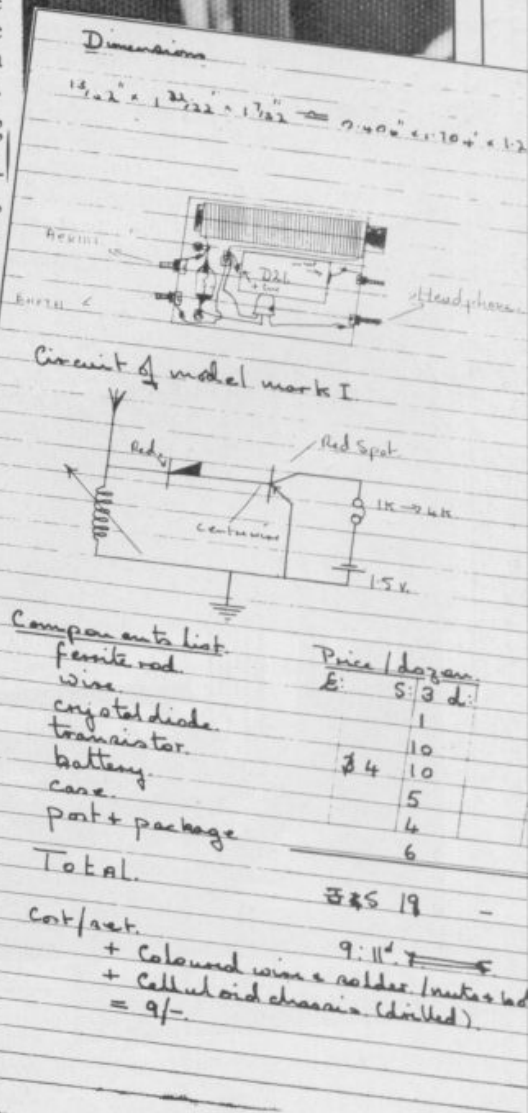 Dimensions
Aerial
D26
Headphone
Circuit of model mark I
Red
Red Spot
centre wire
1K → 4K
1.5 v.
Components list. Price / dozen.
£: S: d:
ferrite rod. 3
wire. 1
crystal diode. 10
transistor. 4 10
battery. 5
case. 4
post + package 6
TOTAL. 5 19 -
Cost/set. 9:11d
+ Coloured wire & solder / nuts +
+ Celluloid chassis (drilled).
= 9/-.